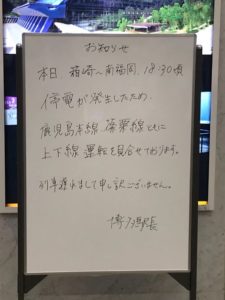 お知らせ
本日 箱崎～南福岡、18:30頃
停電が発生したため、
鹿児島本線 篠栗線 ともに
上下線 運転を見合せております。
列車遅れまして申し訳ございません。
博多駅長